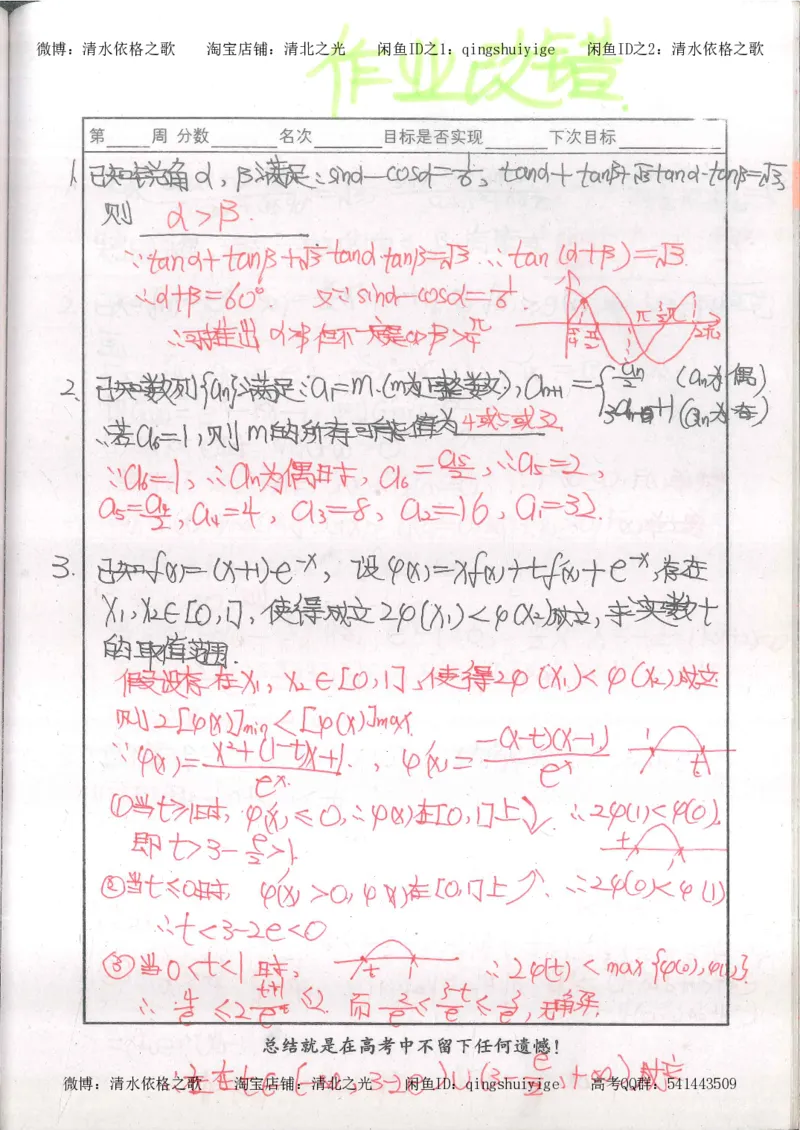 微博：清水依格之歌 淘宝店铺：清北之光 闲鱼ID之1：qingshuiyige 闲鱼ID之2：清水依格之歌
作业改错
第____周 分数______名次______目标是否实现______下次目标________
1. 已知锐角α，β满足：sinα-cosα=1/6，tanα+tanβ+√3tanα·tanβ=√3，
则 α>β.
∵tanα+tanβ+√3tanαtanβ=√3 ∴tan(α+β)=√3.
∴α+β=60° 又∵sinα-cosα=1/6
π 3/2π 2π
π/4 π/2
2、已知数列{an}满足：a1=m.(m为正整数)，an+1={an/2 (an为偶)
3an+1 (an为奇)
若a6=1，则m的所有可能值为4或5或32
∵a6=1，∴an为偶时，a6=a5/2，∴a5=2
a5=a4/2，a4=4，a3=8，a2=16，a1=32.
3. 已知f(x)=(x+1)e^-x，设φ(x)=xf(x)+tf'(x)+e^-x，存在
x1,x2∈[0,1]，使得成立2φ(x1)<φ(x2)成立，求实数t
的取值范围.
假设存在x1，x2∈[0,1]，使得2φ(x1)<φ(x2)成立
则2[φ(x)]min<[φ(x)]max
∵φ(x)=x²+(1-t)x+1/e^x，φ'(x)=-(x-t)(x-1)/e^x 1 t
①当t≥1时，φ'(x)≤0，∴φ(x)在[0,1]上↘，∴2φ(1)<φ(0)，
即t>3-e/2>1 t 1
②当t≤0时，φ'(x)>0，φ(x)在[0,1]上↗，∴2φ(0)<φ(1)
∴t<3-2e<0
③当0<t<1时， t 1 ∴2φ(t)<max{φ(0),φ(1)}
∴4/e≤2·t+1/e^t≤2 而2/e≤3-t/e≤3/e，无解.
总结就是在高考中不留下任何遗憾！
∴存在t∈(-∞，3-2e)∪(3-e/2，+∞)成立
微博：清水依格之歌 淘宝店铺：清北之光 闲鱼ID：qingshuiyige 高考QQ群：541443509